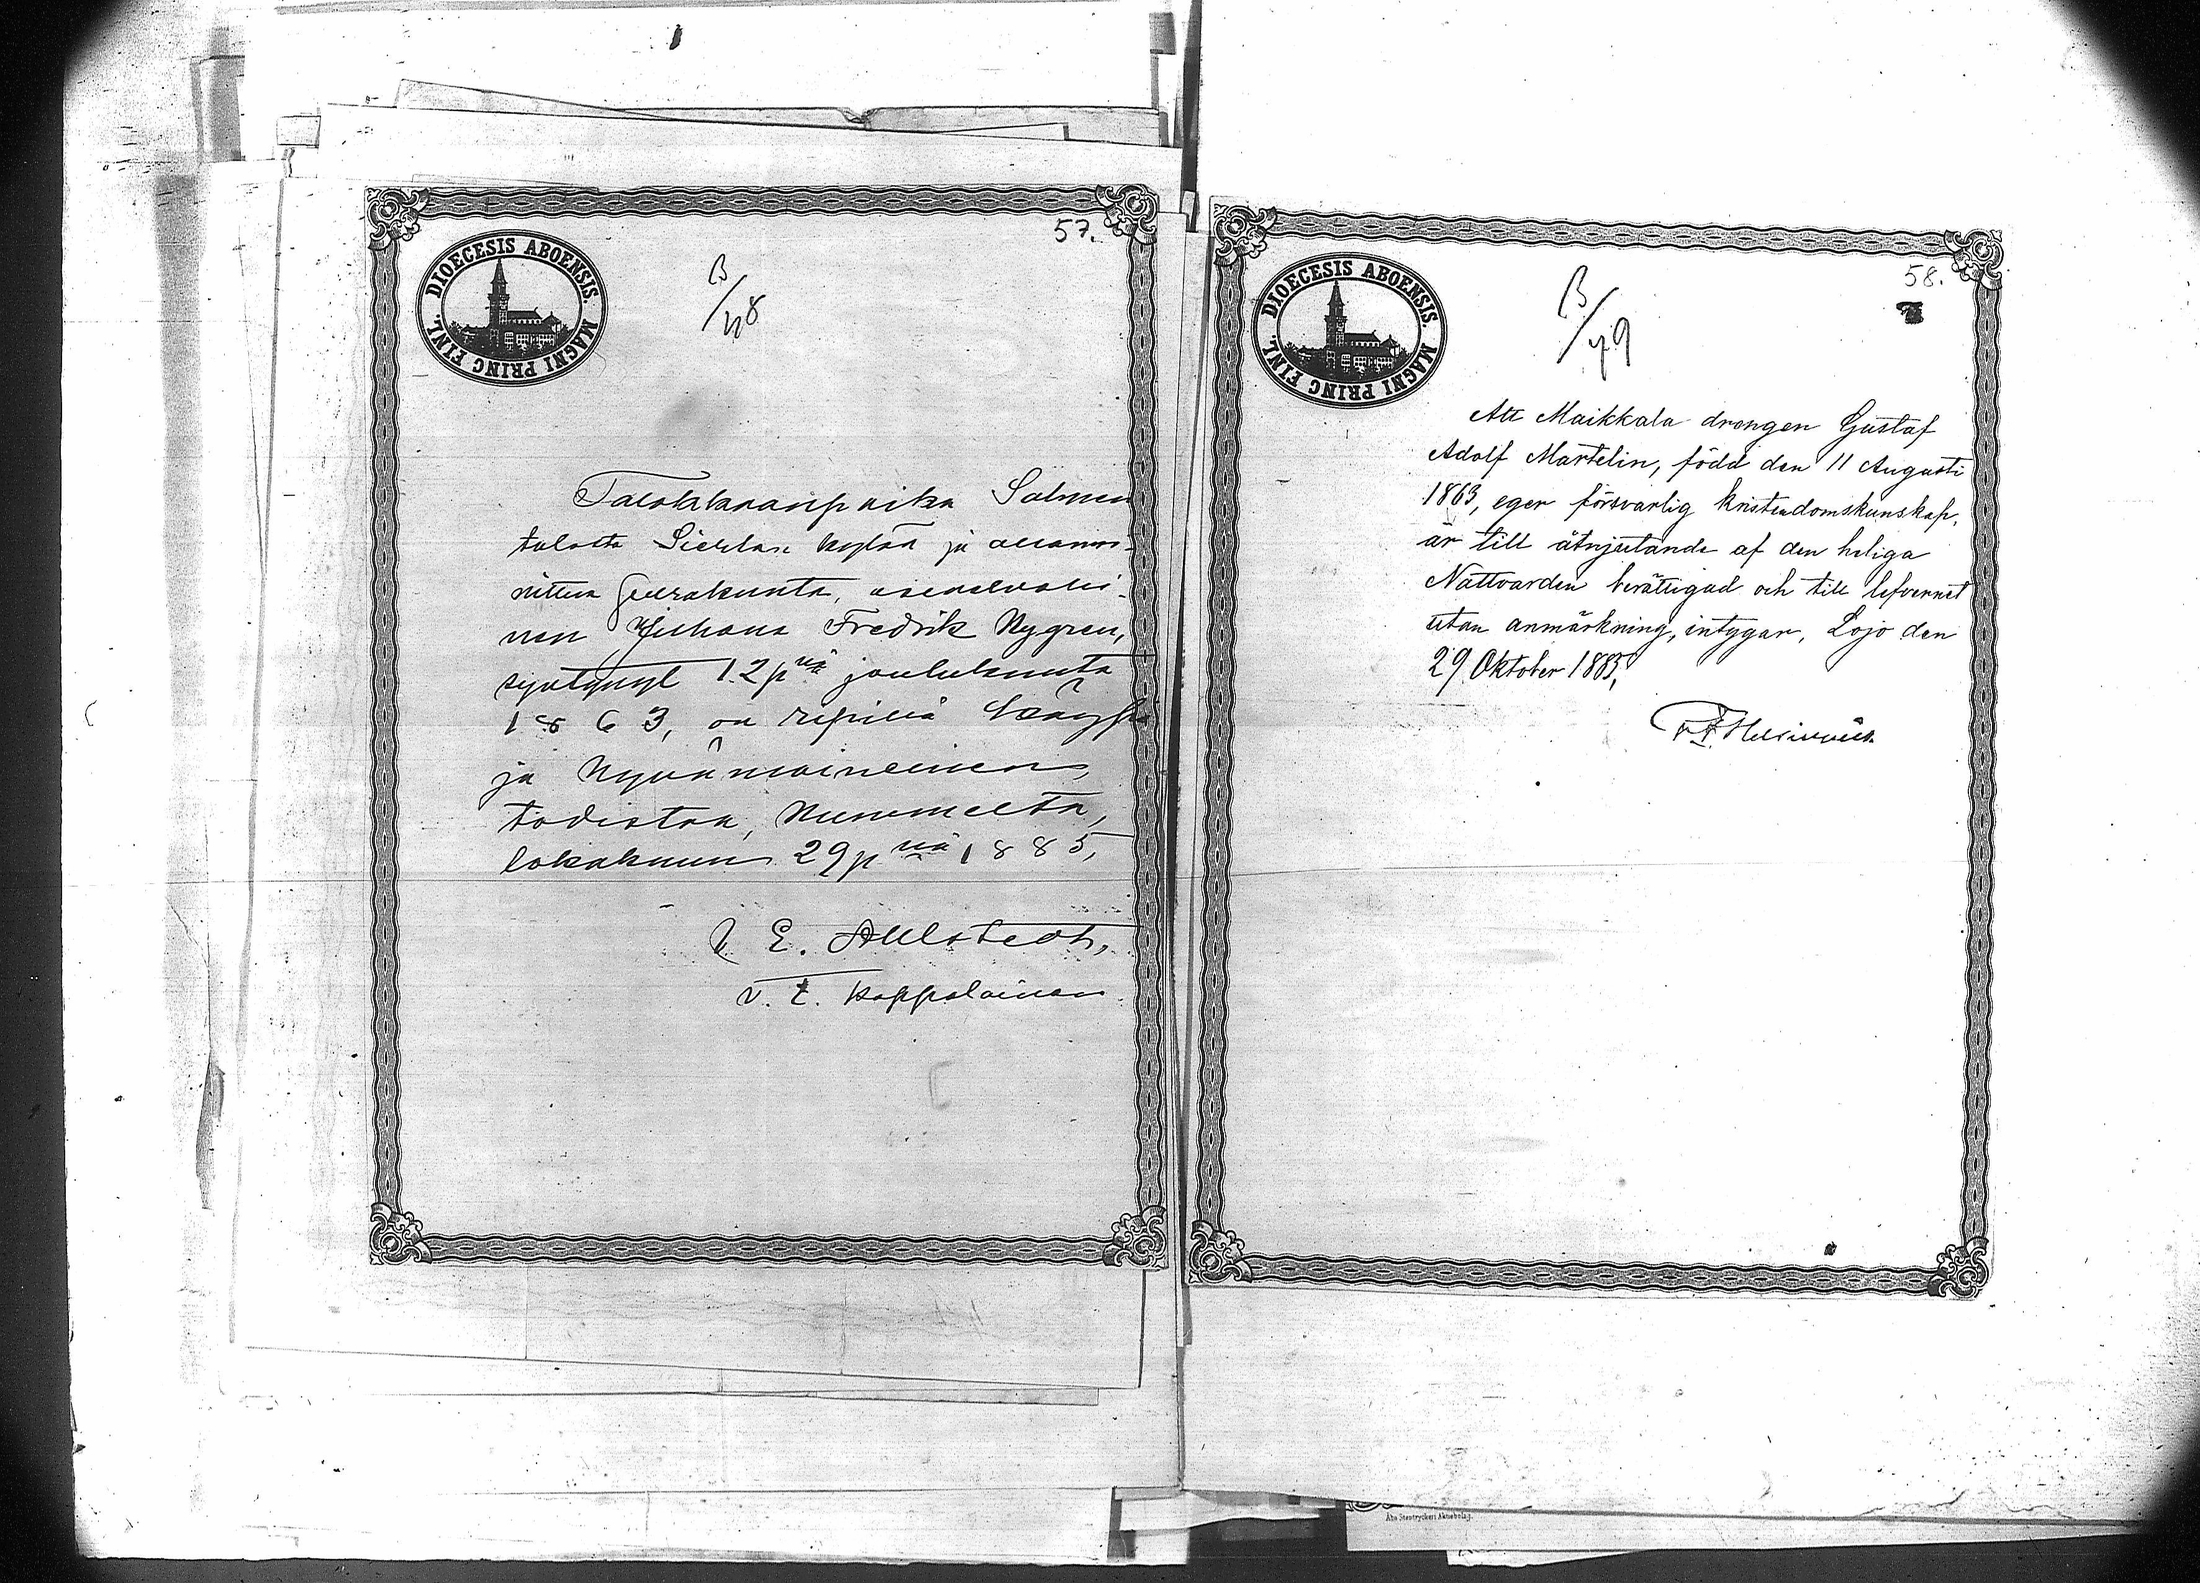 57.
DIOECESIS ABOENSIS. MAGNI PRINC FINL.
B/48
Talokkaanpoika Salmen
talosta Sierlan kylää ja allamai-
nittua seurakunta, asevelvolli-
nen Juhana Fredrik Nygren,
syntynyt 12 pnä joulukuuta
1863, on ripillä käynyt
ja hyvämaineinen,
todistaa, Nummelta,
lokakuun 29 pnä 1885,
E. Ahlstedt,
v. t. kappalainen
58.
DIOECESIS ABOENSIS. MAGNI PRINC FINL.
B/49
Att Maikkala drängen Gustaf
Adolf Martelin, född den 11 Augusti
1863, eger försvarlig kristendomskunskap,
är till åtnjutande af den heliga
Nattvarden berättigad och till lefvernet
utan anmärkning, intygar, Lojo den
29 Oktober 1885,
Åbo Stentryckeri Aktiebolag.